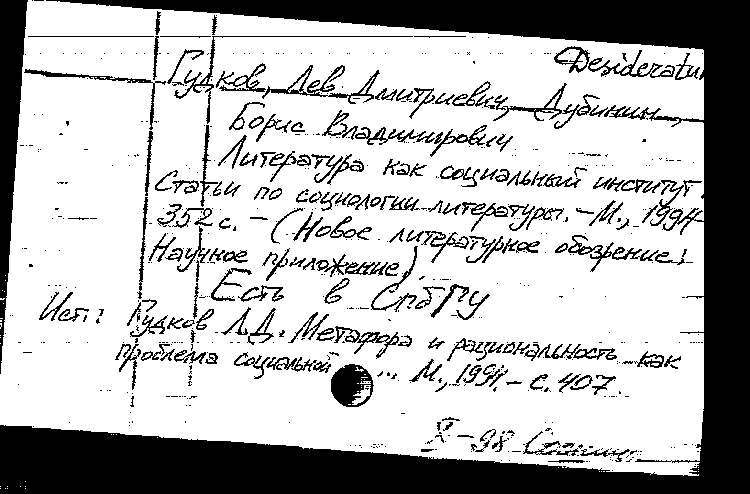 Desideratu
Гудков, Лев Дмитриевич, Дубинин,
Борис Владимирович
Литература как социальный институт.
Статьи по социологии литературы. - М., 1994
352 с. - (Новое литературное обозрение:
Научное приложение)
Есть в СПбГУ
Ист.: Гудков Л.Д. Метафора и рациональность как
проблема социальной ... М., 1994. - с. 407
X-98